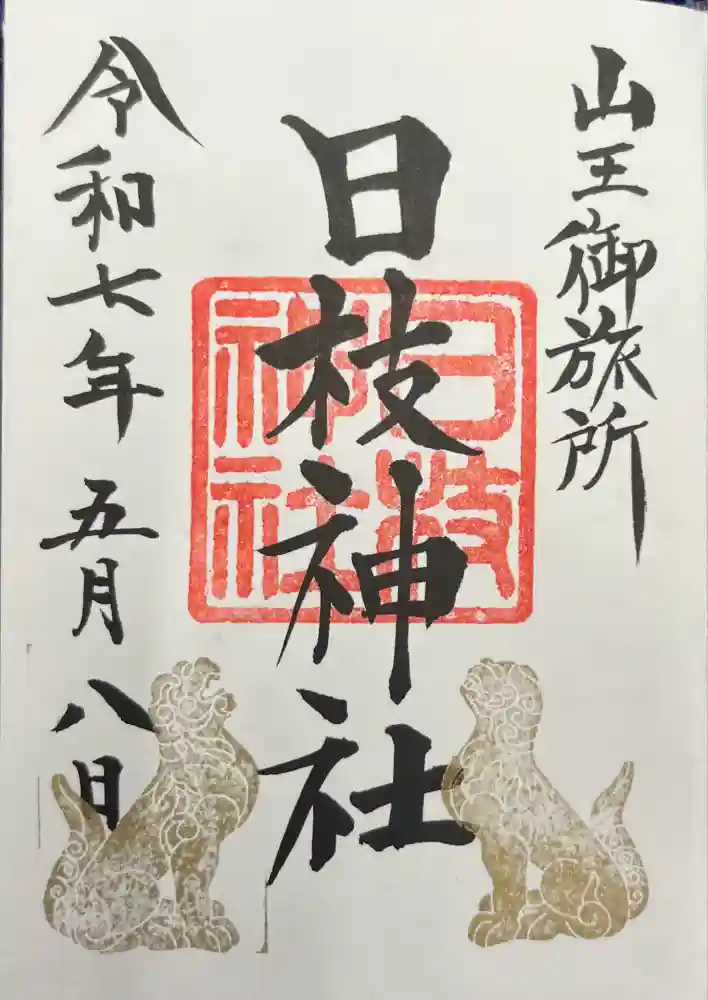 山王御旅所
日枝神社
日枝
神社
令和七年 五月 八日